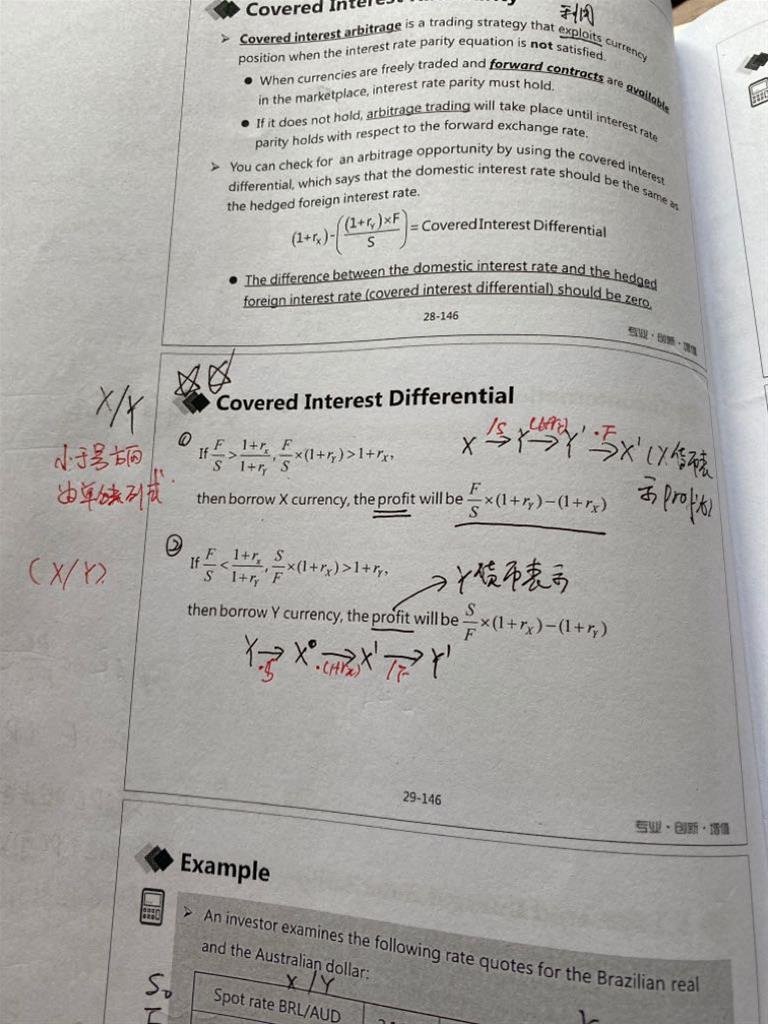 利用
Covered interest arbitrage is a trading strategy that exploits currency
position when the interest rate parity equation is not satisfied.
When currencies are freely traded and forward contracts are available
in the marketplace, interest rate parity must hold.
If it does not hold, arbitrage trading will take place until interest rate
parity holds with respect to the forward exchange rate.
You can check for an arbitrage opportunity by using the covered interest
differential, which says that the domestic interest rate should be the same as
the hedged foreign interest rate.
(1+rₓ)-((1+rᵧ)×F/S)=Covered Interest Differential
The difference between the domestic interest rate and the hedged
foreign interest rate (covered interest differential) should be zero.
28-146
专业·创新·增值
X/Y
Covered Interest Differential
① If F/S > (1+rₓ)/(1+rᵧ), F/S ×(1+rᵧ)>1+rₓ,
X /S→ Y → Y' ·F→ X' (X货币表
示profit)
then borrow X currency, the profit will be F/S ×(1+rᵧ)−(1+rₓ)
小于号方向
(X/Y)
② If F/S < (1+rₓ)/(1+rᵧ), S/F ×(1+rₓ)>1+rᵧ,
Y货币表示
then borrow Y currency, the profit will be S/F ×(1+rₓ)−(1+rᵧ)
Y ·S→ X ·(1+rₓ)→ X' /F→ Y'
29-146
专业·创新·增值
Example
An investor examines the following rate quotes for the Brazilian real
and the Australian dollar:
X/Y
S₀
Spot rate BRL/AUD